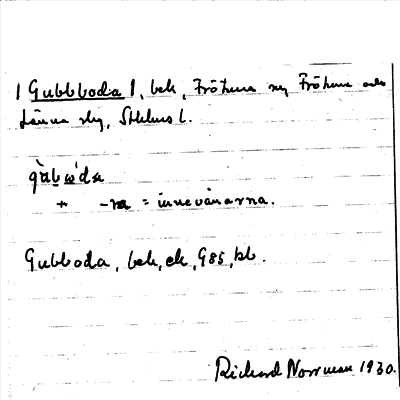 | Gubbboda |, beb, Frötuna sn, Frötuna och
Länna slg, Sthlms l.
gubὼda
+ -ra = innevånarna.
Gubboda, beb, ek, G85, bl.
Richard Norrman 1930.